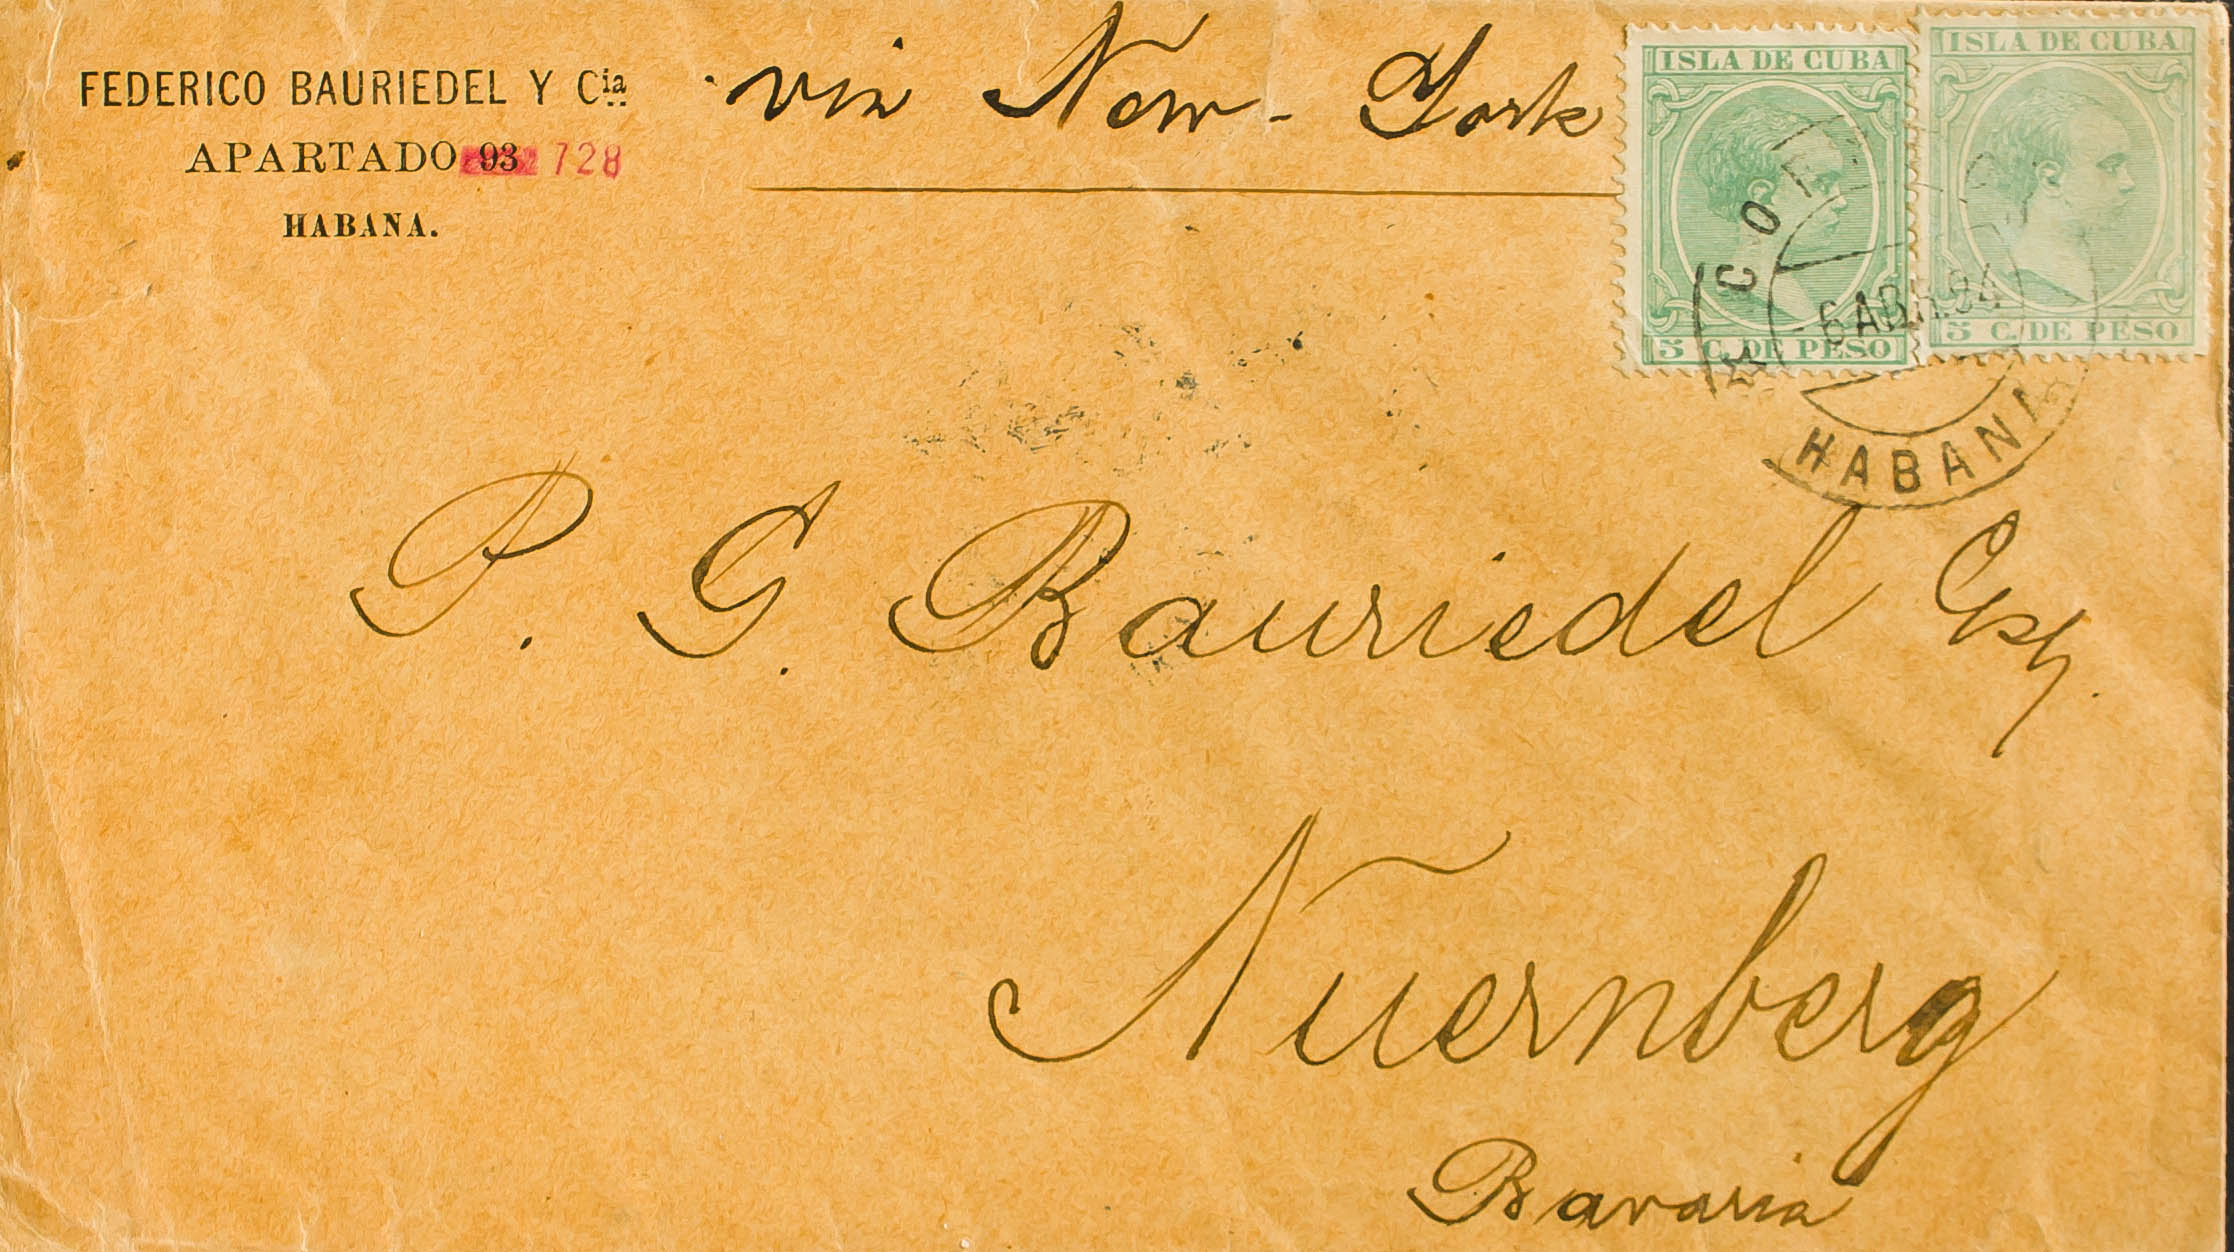 FEDERICO BAURIEDEL Y Cia
APARTADO 93 728
HABANA.
via New-York
ISLA DE CUBA
5 C. DE PESO
ISLA DE CUBA
5 C. DE PESO
6 ABR. 94
HABANA
P. G. Bauriedel Esq.
Nuernberg
Bavaria